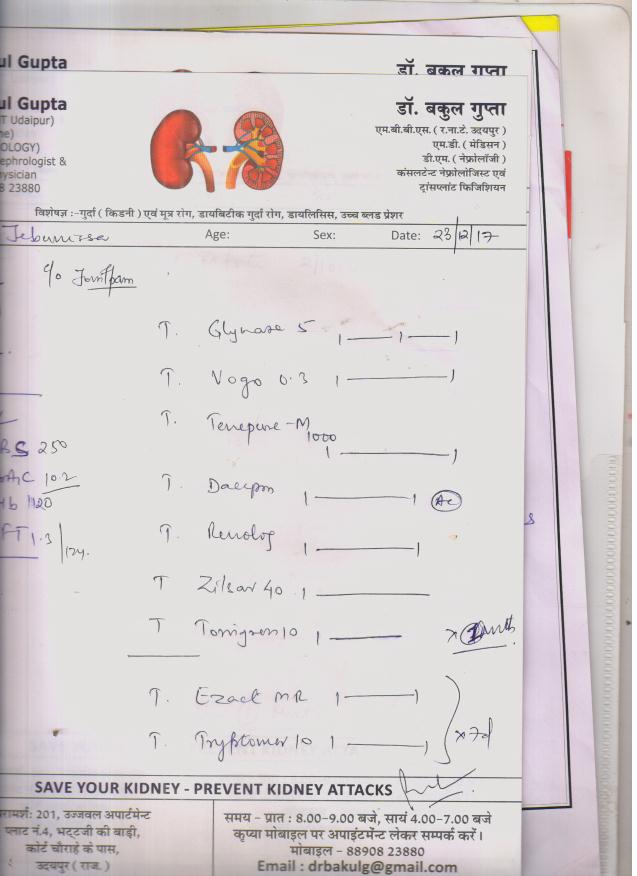 ul Gupta
डॉ. बकुल गुप्ता
ul Gupta
डॉ. बकुल गुप्ता
T Udaipur)
एम.बी.बी.एस. ( र.ना.टे. उदयपुर )
ne)
एम.डी. ( मेडिसन )
OLOGY)
डी.एम. ( नेफ्रोलॉजी )
ephrologist &
कंसलटेन्ट नेफ्रोलॉजिस्ट एवं
ysician
ट्रांसप्लांट फिजिशियन
8 23880
विशेषज्ञ :-गुर्दा ( किडनी ) एवं मूत्र रोग, डायबिटीक गुर्दा रोग, डायलिसिस, उच्च ब्लड प्रेशर
Age: Sex: Date: 23/12/17
c/o
T. Glynase 5 1 — 1 — 1
T. Vogo 0.3 1 — 1
T. Tenepure-M 1000 1 — 1
BS 250
T. 1 — 1 AC
A1C 10.2
Hb 1120
T. Renolog 1 — 1
FT 1.3 / 124.
T Zilsar 40 1 —
T 10 1 —
T. Ezact MR 1 — 1
T. Tryptomer 10 1 — 1
x 7d
SAVE YOUR KIDNEY - PREVENT KIDNEY ATTACKS
रामर्श: 201, उज्जवल अपार्टमेन्ट
प्लाट नं.4, भट्टजी की बाड़ी,
कोर्ट चौराहे के पास,
उदयपुर ( राज. )
समय - प्रात : 8.00-9.00 बजे, सायं 4.00-7.00 बजे
कृप्या मोबाइल पर अपाइंटमेन्ट लेकर सम्पर्क करें।
मोबाइल - 88908 23880
Email : drbakulg@gmail.com